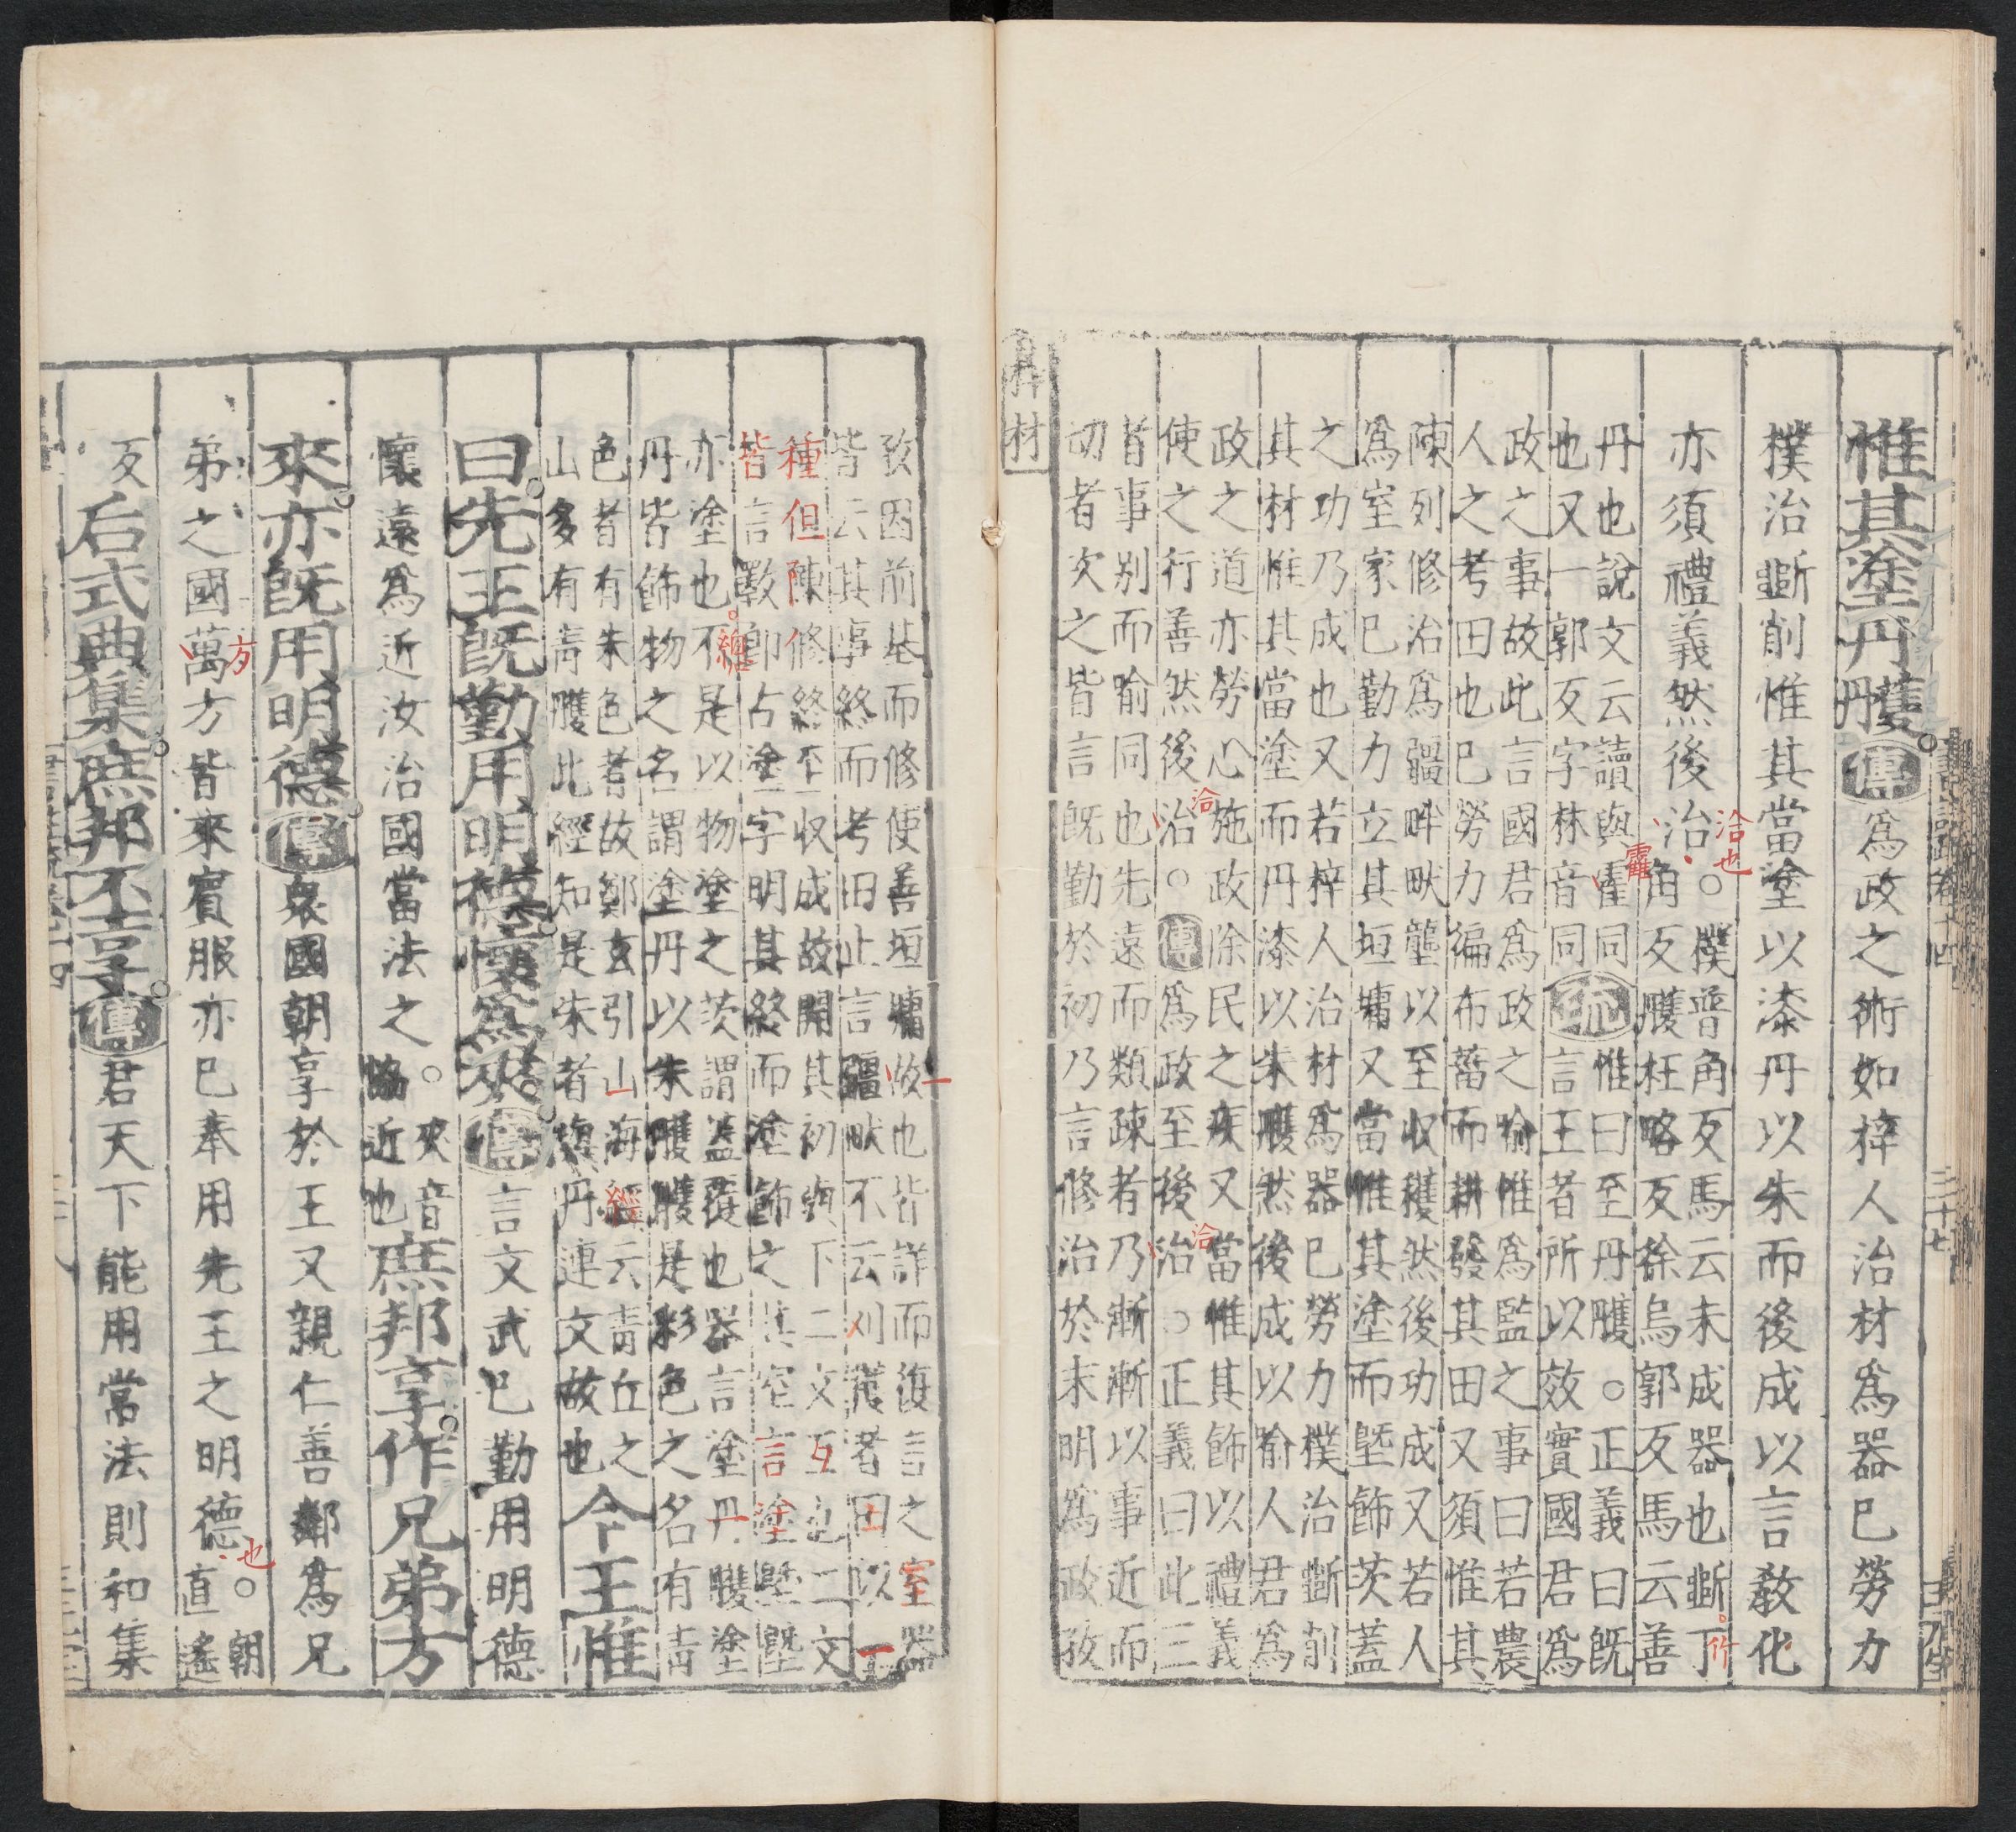 惟其塗丹雘傳爲政之術如梓人治材爲器已勞力
樸治斲削惟其當塗以漆丹以朱而後成以言敎化
亦須禮義然後治○
洽也
樸普角反馬云未成器也斲丁
竹
角反雘枉略反徐烏郭反馬云善
丹也說文云讀與霍同
靃
也又一郭反字林音同
疏
惟曰至丹雘○正義曰旣
言王者所以效實國君爲
政之事故此言國君爲政之喻惟爲監之事曰若農
人之考田也已勞力徧布菑而耕發其田又須惟其
陳列修治爲疆畔畎壟以至收穫然後功成又若人
爲室家已勤力立其垣墉又當惟其塗而塈飾茨蓋
之功乃成也又若梓人治材爲器已勞力樸治斲削
其材惟其當塗而丹漆以朱雘然後成以喻人君爲
政之道亦勞心施政除民之疾又當惟其飾以禮義
使之行善然後治○傳爲政至後治○正義曰此三
洽
洽
者事别而喻同也先遠而類疎者乃漸漸以事近而
切者次之皆言旣勤於初乃言修治於末明爲政孜
梓材
孜因前基而修使善垣墉故也皆詳而復言之室器
一
皆云其事終而考田止言疆畎不云刈穫者田以一
種但陳修終至收成故開其初與下二文互也二文
皆言斁卽古塗字明其終而塗飾之其室言塗塈塈
亦塗也不是以物塗之茨謂蓋覆也器言塗丹雘塗
總
丹皆飾物之名謂塗丹以朱雘雘是彩色之名有靑
色者有朱色者故鄭玄引山海經云靑丘之
山多有靑雘此經知是朱者與丹連文故也今王惟
曰先王旣勤用明德懷爲夾傳言文武已勤用明德
懷遠爲近汝治國當法之○
夾音
協近也
庶邦享作兄弟方
來亦旣用明德傳衆國朝享於王又親仁善鄰爲兄
弟之國萬方皆來賓服亦已奉用先王之明德○
方
也
朝
直遙
反
后式典集庶邦丕享傳君天下能用常法則和集